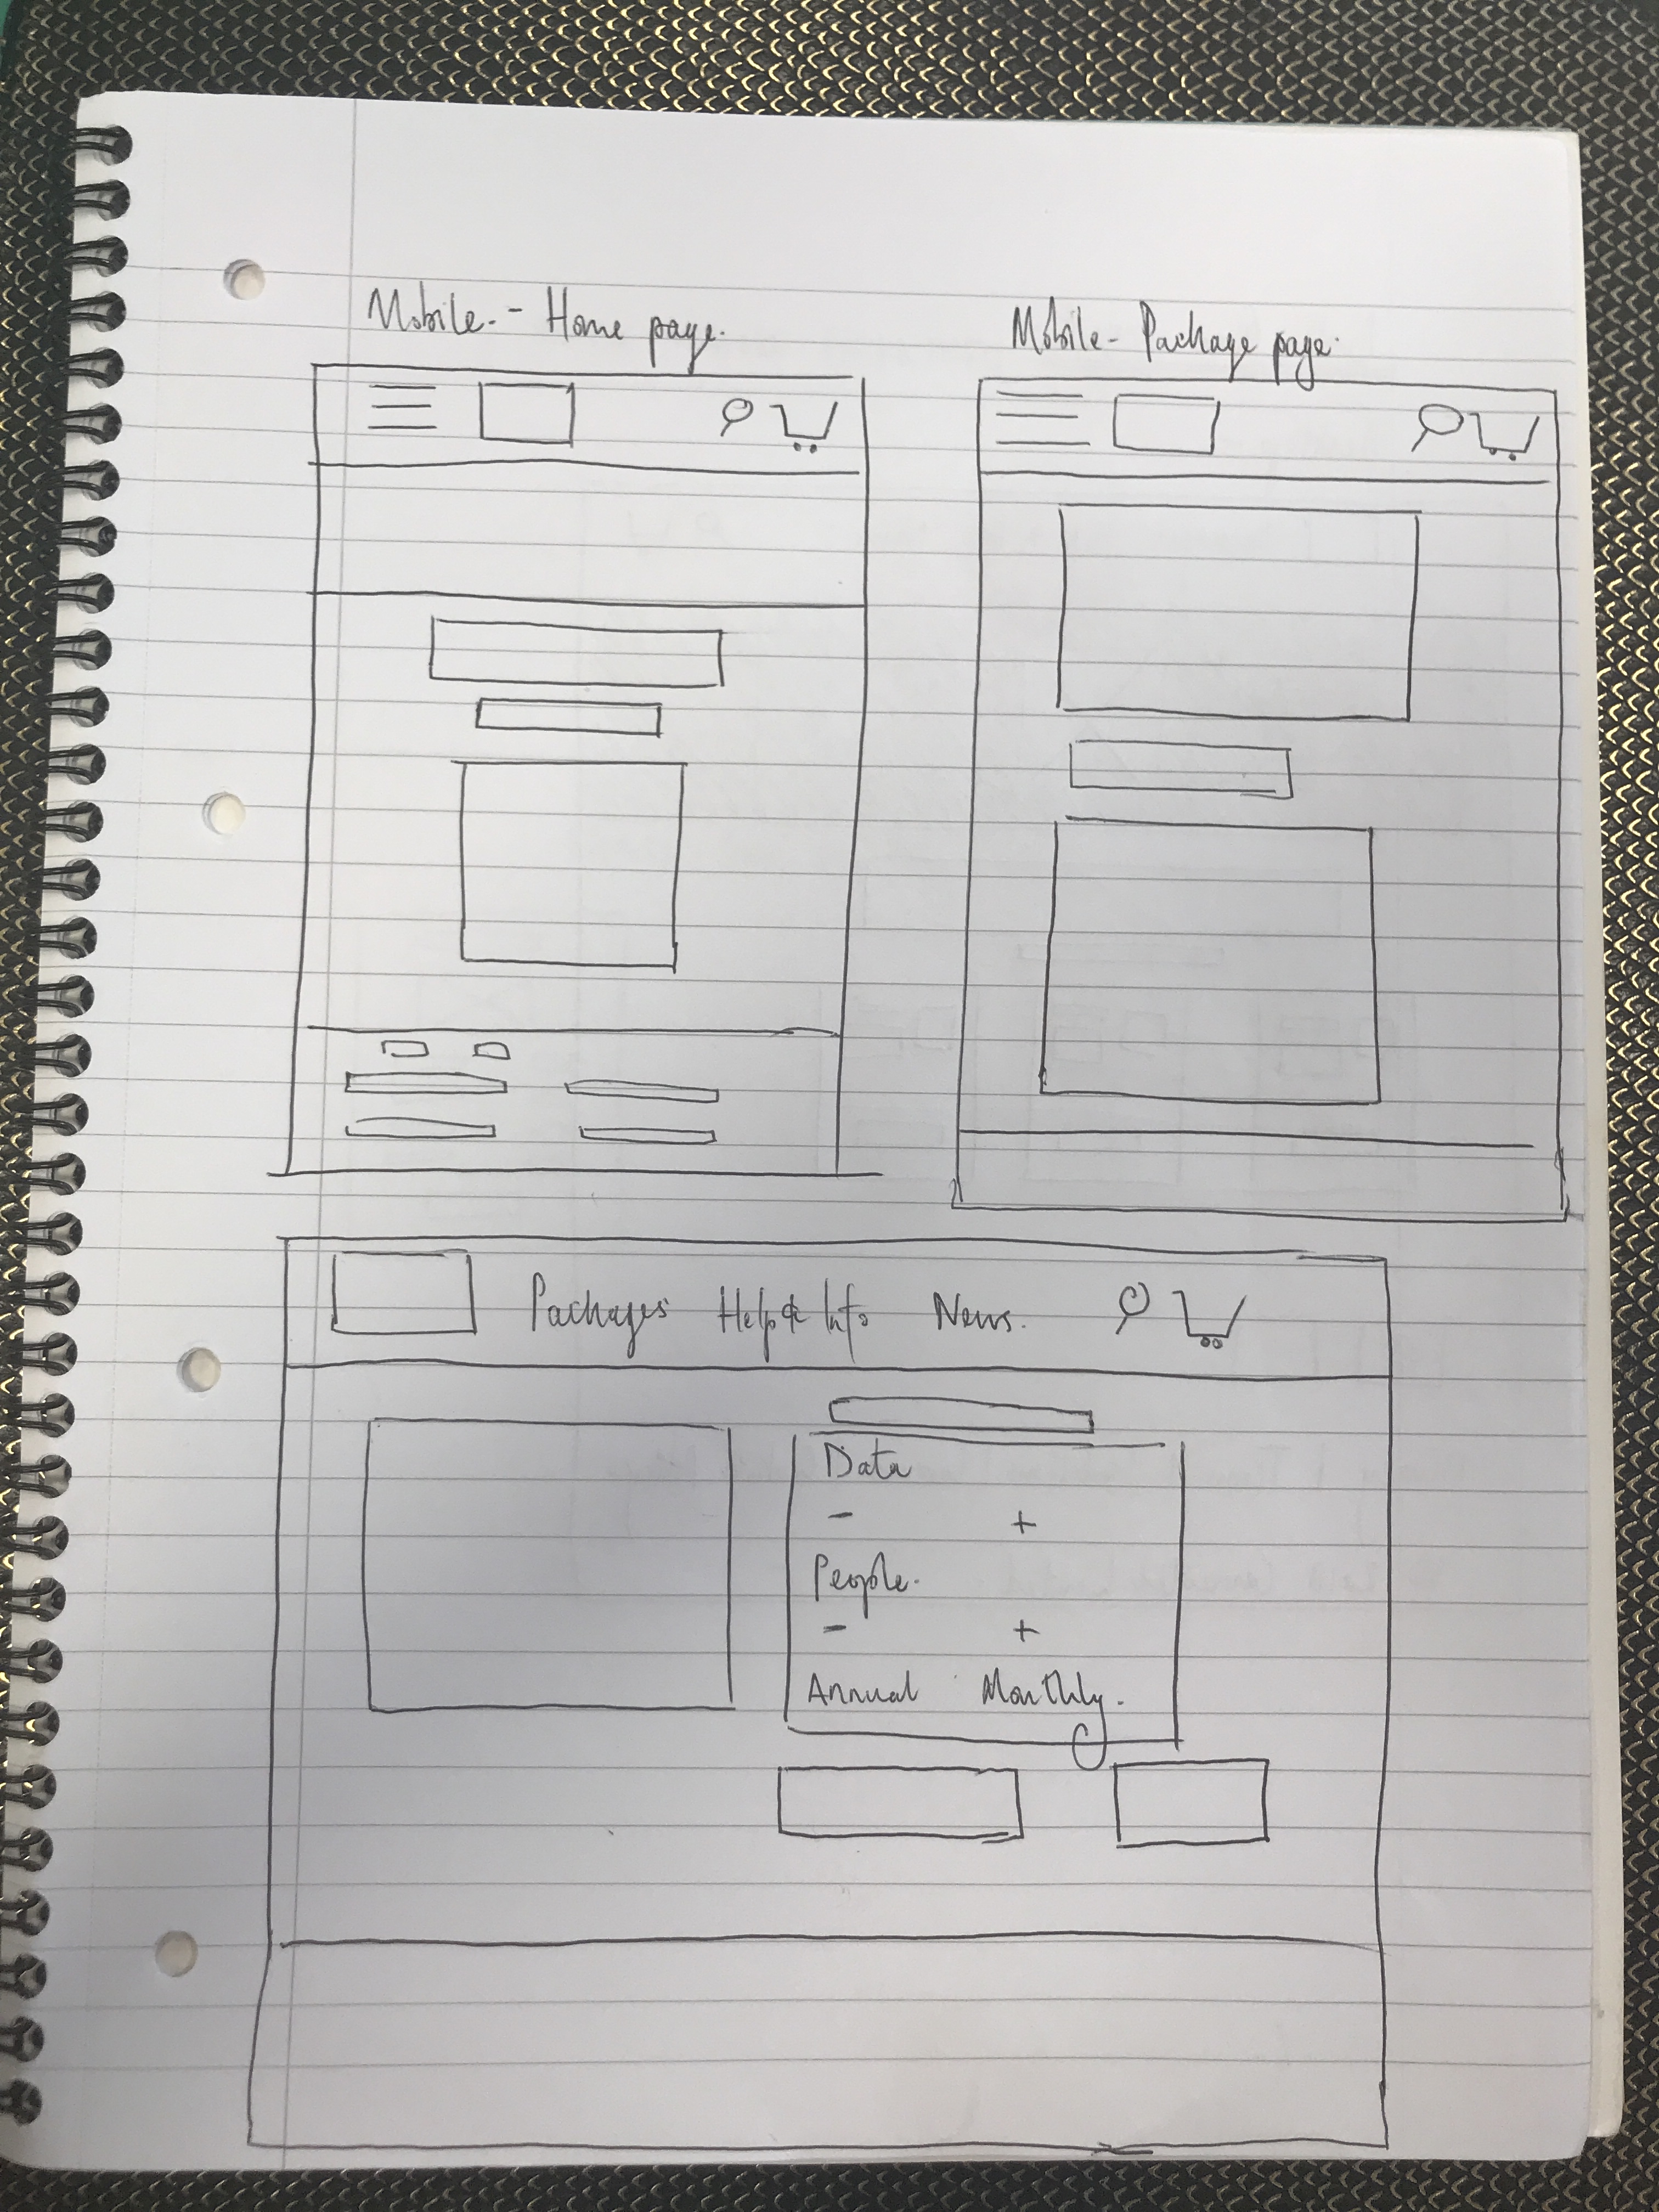 Mobile. - Home page.
Mobile - Package page.
Packages Help & Info News.
Data
- +
People.
- +
Annual Monthly.